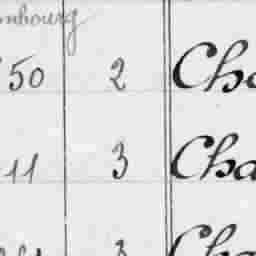 mbourg
50 2 Cha
11 3 Cha
3 Cha